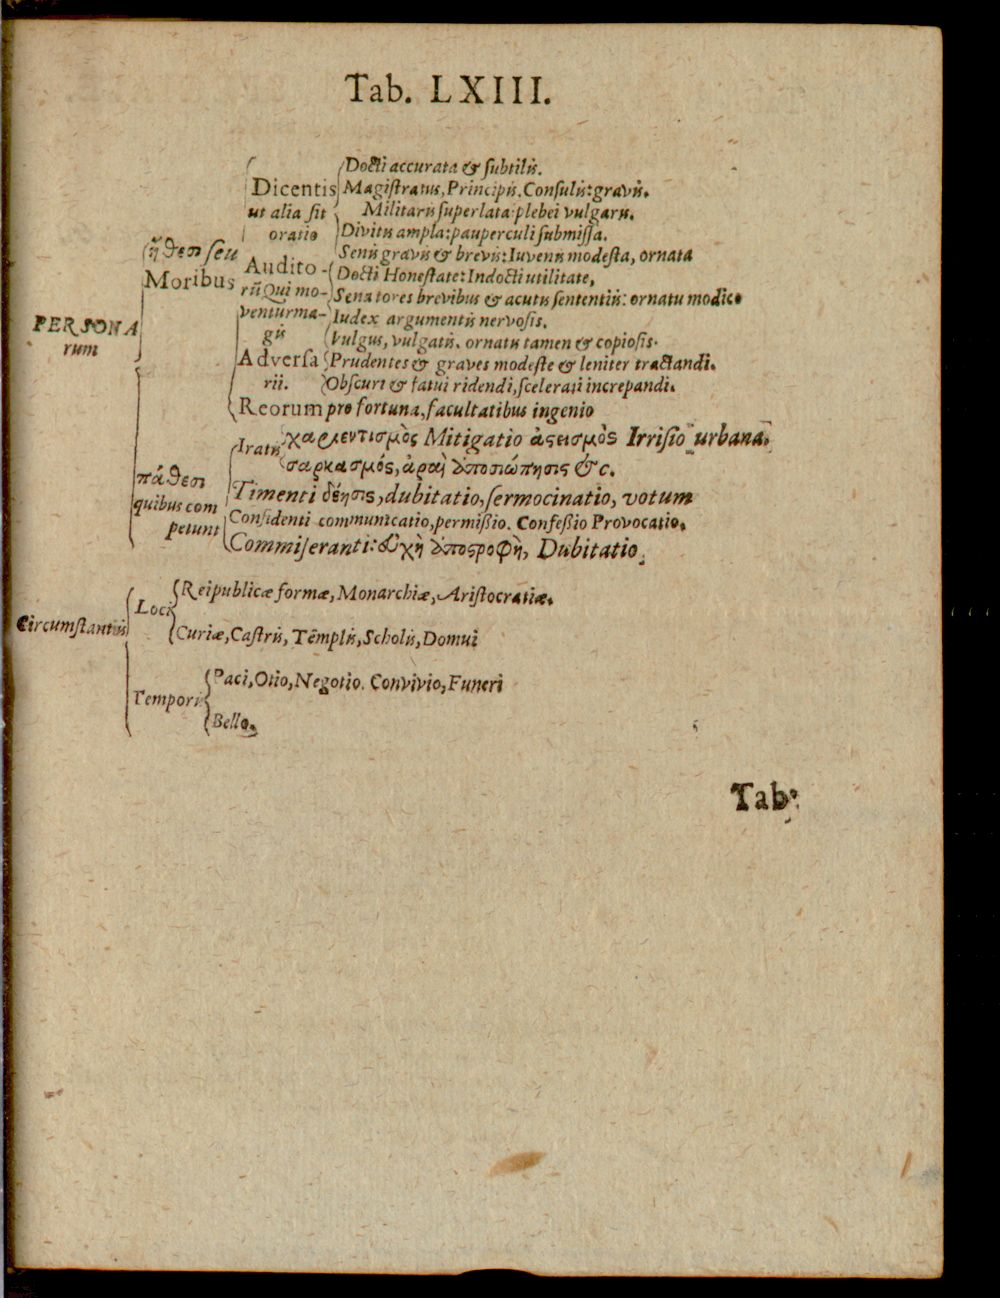 Tab. LXIII.
Docti accurata & subtilis.
Dicentis
Magistratus, Principis. Consulis: gravis.
ut alia sit
Militaris superlata: plebei vulgaris.
oratio
Divitis ampla: pauperculi submissa.
Senis gravis & brevis: Iuvenis modesta, ornata
ἤθεσι seu
Moribus
Audito-
Docti Honestate: Indocti utilitate,
rũ Qui mo-
Senatores brevibus & acutis sententiis: ornatu modico
ventur ma-
Iudex argumentis nervosis.
gis
Vulgus, vulgatis. ornatis tamen & copiosis.
PERSONA
rum
Adversa
Prudentes & graves modeste & leniter tractandi.
rii.
Obscuri & fatui ridendi, scelerati increpandi.
Reorum pro fortuna, facultatibus ingenio
Iratis
χαριεντισμὸς Mitigatio ἀστεισμὸς Irrisio urbana.
σαρκασμός, ἀραὴ ἀποσιώπησις &c.
πάθεσι
quibus com
petunt
Timenti δέησις, dubitatio, sermocinatio, votum
Confidenti communicatio, permißio. Confeßio Provocatio.
Commiseranti: εὐχὴ ἀποστροφὴ, Dubitatio.
Circumstantiis
Loci
Reipublicæ formæ, Monarchiæ, Aristocratiæ.
Curiæ, Castris, Templis, Scholis, Domui
Tempori
Paci, Otio, Negotio. Convivio, Funeri
Bello.
Tab: